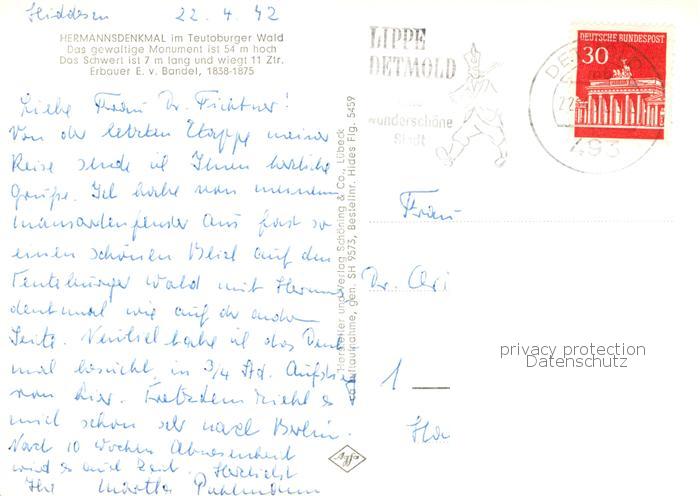 Hiddesen 22.4.72
HERMANNSDENKMAL im Teutoburger Wald
Das gewaltige Monument ist 54 m hoch
Das Schwert ist 7 m lang und wiegt 11 Ztr.
Erbauer E. v. Bandel, 1838-1875
Liebe Frau Dr. Fichtner!
Von der letzten Etappe meiner
Reise sende ich Ihnen herzliche
Grüße. Ich habe von meinem
Mansardenfenster aus fast so
einen schönen Blick auf den
Teutoburger Wald mit Hermanns
denkmal wie auf der andern
Seite. Neulich habe ich das Denk
mal besucht, in 3/4 Std. Aufstieg
von hier. Trotzdem zieht es
mich schon sehr nach Berlin.
Nach 10 Wochen Abwesenheit
wird es auch Zeit. Herzlichst
Ihre Martha
Hersteller und Verlag Schöning & Co., Lübeck
Luftaufnahme, gen. SH 9573, Bestellnr. Hides Flg. 5459
LIPPE
DETMOLD
wunderschöne
Stadt
DETMOLD
493
DEUTSCHE BUNDESPOST
30
Frau
Dr.
1
privacy protection
Datenschutz